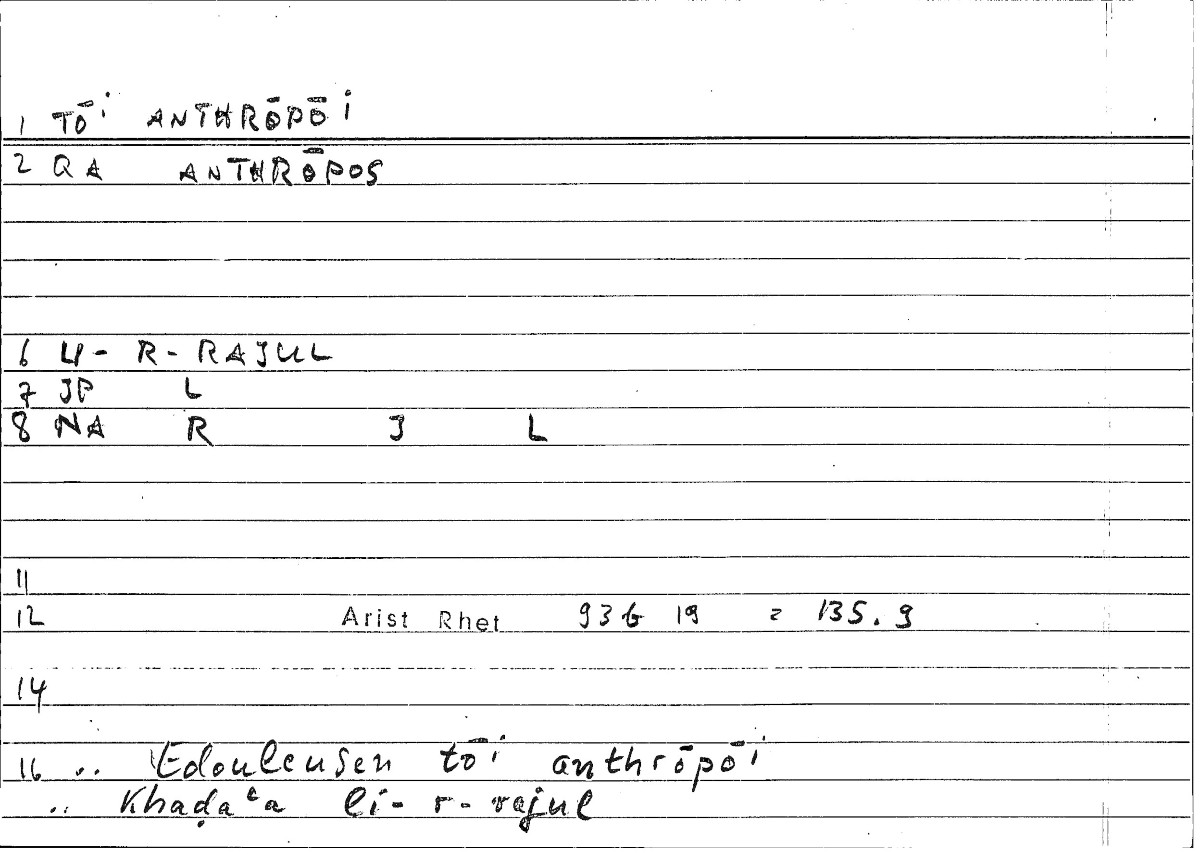 1 TŌi ANTHRŌPŌi
2 QA ANTHRŌPOS
6 LI- R- RAJUL
7 JP L
8 NA R J L
11
12 Arist Rhet 93b 19 = 135.9
14
16 .. Edouleusen tōi anthrōpōi
.. Khaḍaʿa li- r- rajul